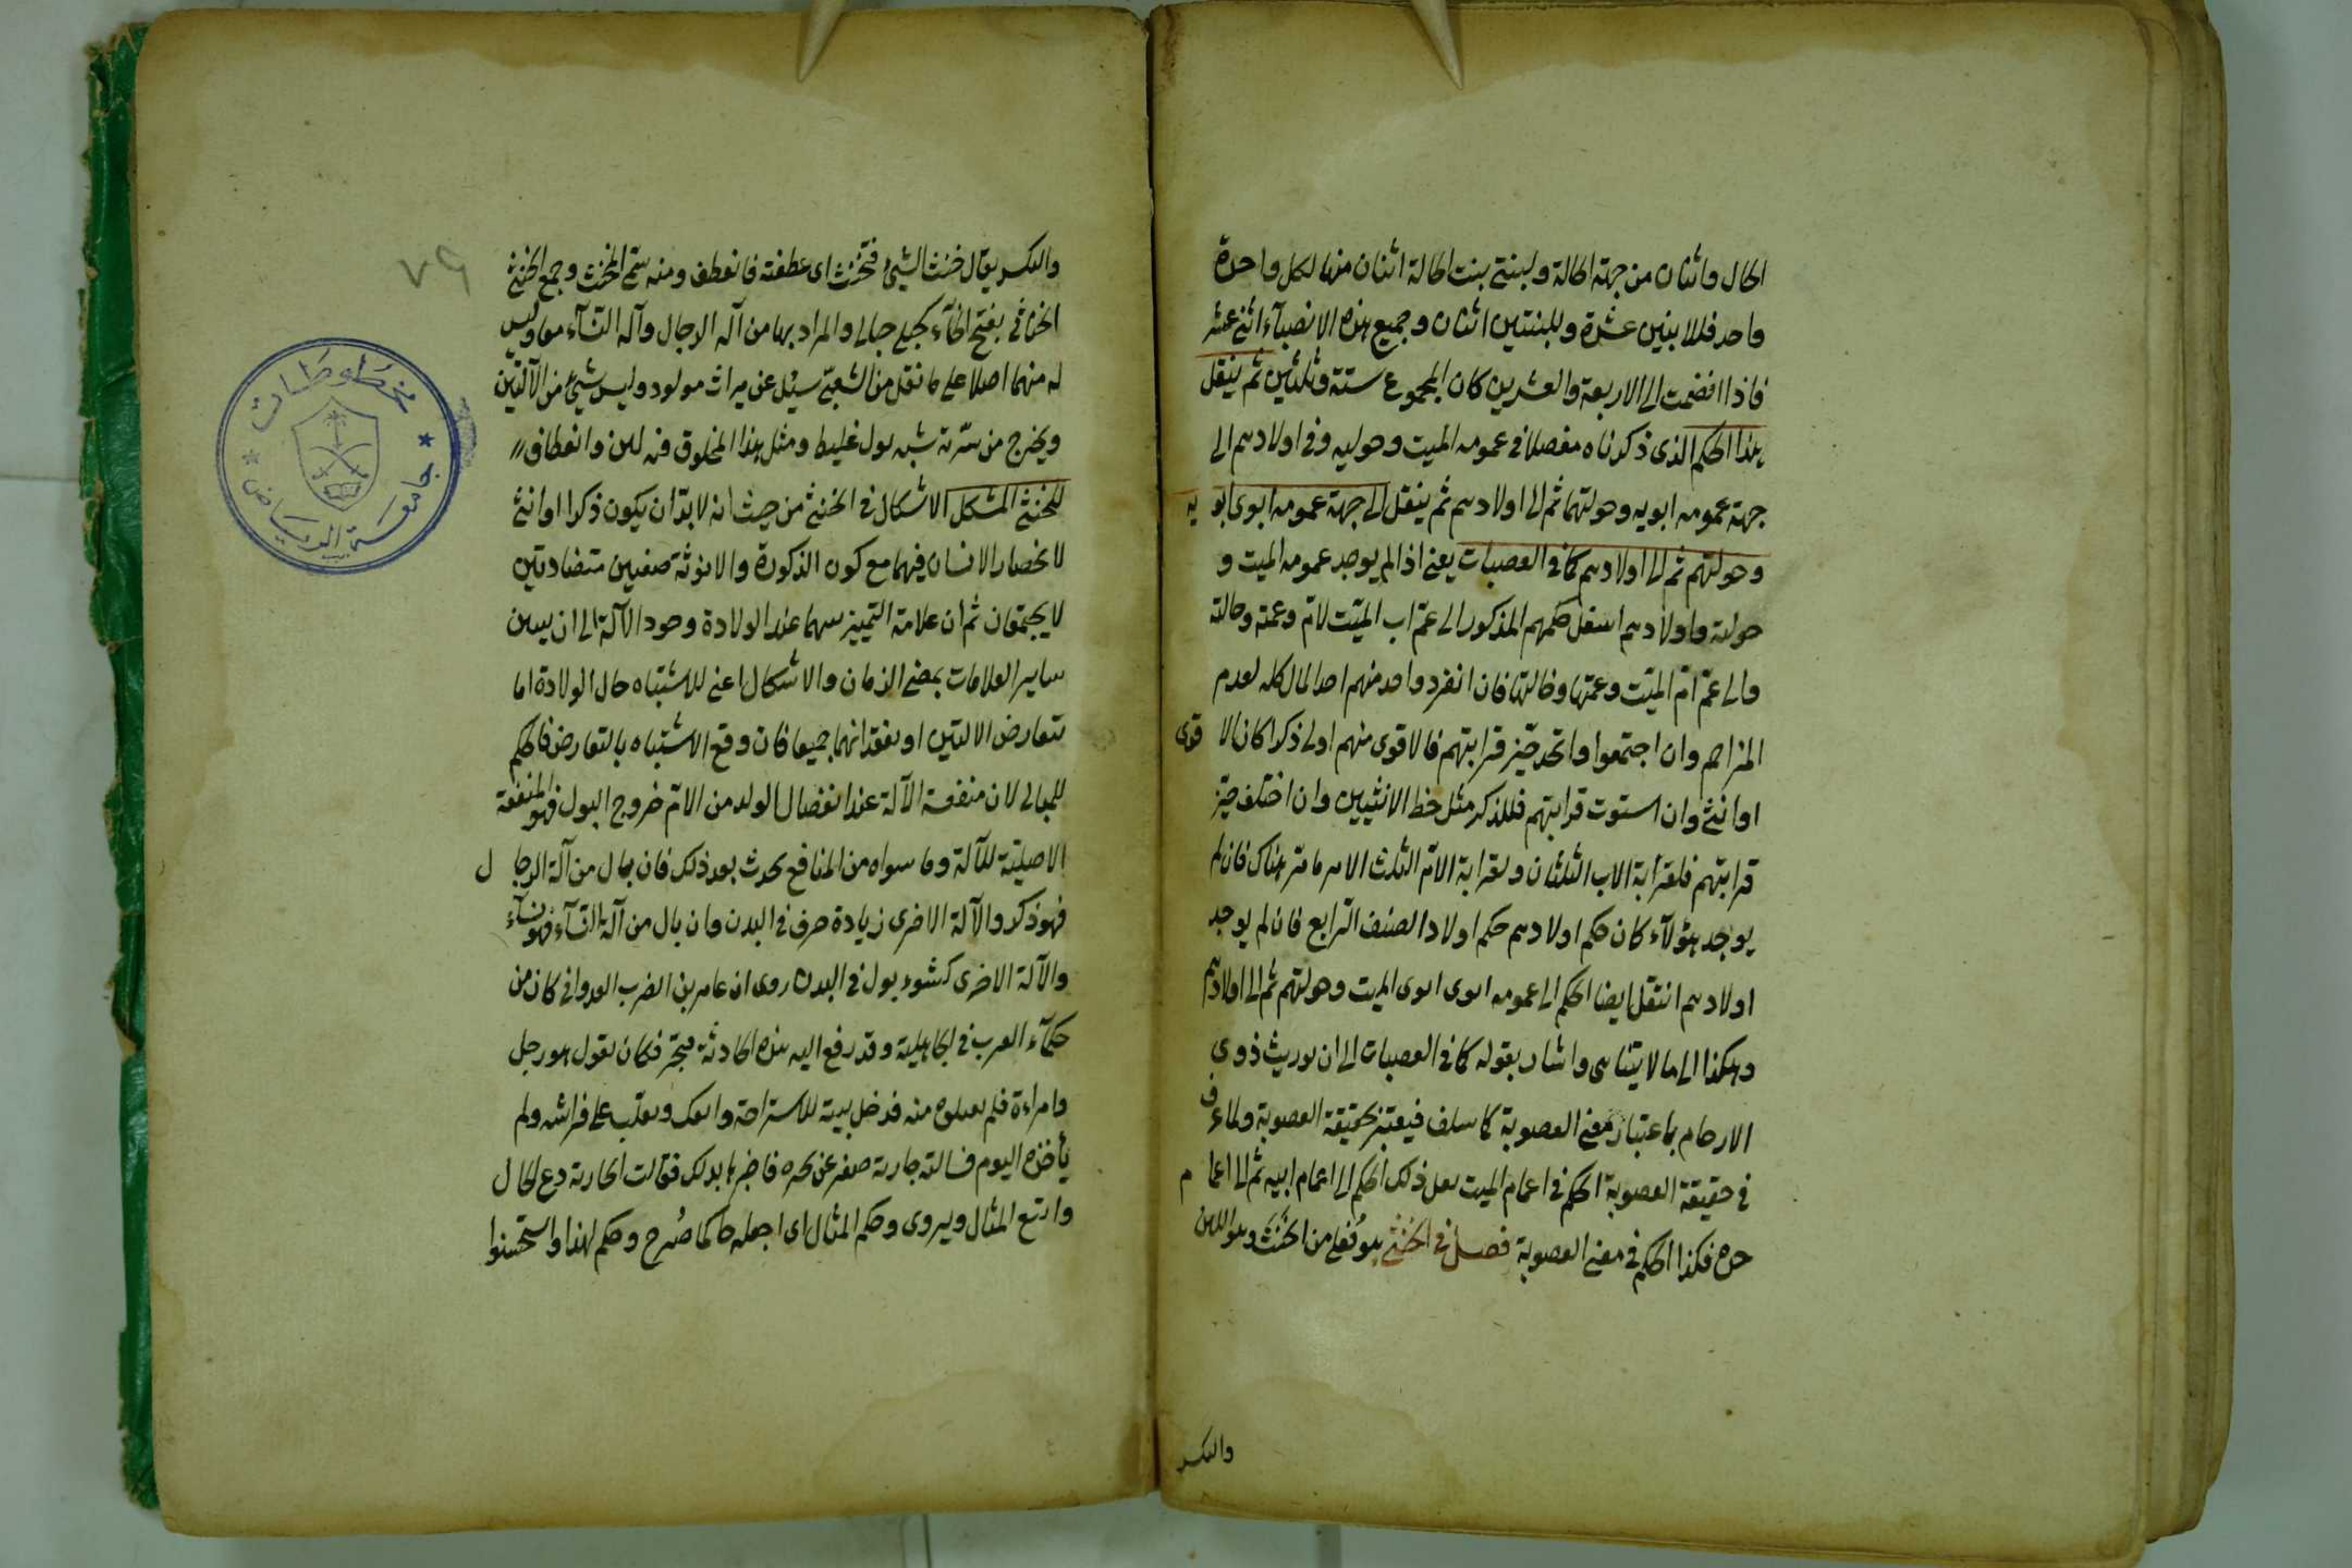 الخال واثنان من جهة الخالة ولبنتي بنت الخالة اثنان منها لكل واحدة
واحد فللابنين عشرة وللبنتين اثنان وجميع هذه الانصباء اثنى عشر
فاذا انضمت الى الاربعة والعشرين كان المجموع ستة وثلثين ثم ينتقل
هذا الحكم الذى ذكرناه مفصلا فى عمومه الميت وخوليه وفى اولادهم الى
جهة عمومه ابويه وخولتهما ثم الى اولادهم ثم ينتقل الى جهة عمومه ابوى ابويه
وخولتهم ثم الى اولادهم كما فى العصبات يعنى اذا لم يوجد عمومه الميت و
خولته واولادهم انتقل حكمهم المذكور الى عم اب الميت لام وعمته وخالته
والى عم ام الميت وعمتها وخالتها فان انفرد واحد منهم اخذ المال كله لعدم
المزاحم وان اجتمعوا واتحد حيز قرابتهم فالاقوى منهم اولى ذكرا كان الاقوى
او انثى وان استوت قرابتهم فللذكر مثل حظ الانثيين وان اختلف حيز
قرابتهم فلقرابة الاب الثلثان ولقرابة الام الثلث الاخر ما مر هناك فان لم
يوجد هؤلاء كان حكم اولادهم حكم اولاد الصنف الرابع فان لم يوجد
اولادهم انتقل ايضا الحكم الى عمومه ابوى ابوى الميت وخولتهم ثم الى اولادهم
وهكذا الى ما لا يتناهى واشار بقوله كما فى العصبات الى ان توريث ذوى
الارحام باعتبار معنى العصوبة كما سلف فيعتبر بحقيقة العصوبة ولما عرف
فى حقيقة العصوبة الحكم فى اعمام الميت نقل ذلك الحكم الى اعمام ابيه ثم الى اعمام
جده فكذا الحكم فى معنى العصوبة فصل فى الخنثى هو فعلى من الخنث وهو اللين
والتكسر
والتكسر يقال خنث الشئ فتخنث اى عطفته فانعطف ومنه سمى المخنث وجمع الخنثى
الخناثى بفتح الخاء كحبلى حبالى والمراد بها من آلة الرجال وآلة النساء معا وليس
له منهما اصلا على ما نقل من الشعبى سئل عن ميراث مولود وليس شئ من الآلتين
ويخرج من سرته شبه بول غليظ ومثل هذا المخلوق فيه لين وانعطاف
للخنثى المشكل الاشكال فى الخنثى من حيث انه لا بد ان يكون ذكرا او انثى
لانحصار الانسان فيهما مع كون الذكورة والانوثة صفتين متضادتين
لا يجتمعان ثم ان علامة التمييز بينهما عند الولادة وجود الآلة الى ان يتبين
ساير العلامات بمضى الزمان والاشكال اعنى للاشتباه حال الولادة اما
بتعارض الالتين او بفقدانهما جميعا فان وقع الاشتباه بالتعارض فالحكم
للمبال لان منفعة الآلة عند انفصال الولد من الام خروج البول فهو المنفعة
الاصلية للآلة وما سواه من المنافع يحدث بعد ذلك فان بال من آلة الرجال
فهو ذكر والآلة الاخرى زيادة خرق فى البدن وان بال من آلة النساء فهو نساء
والآلة الاخرى كثؤلول فى البدن روى ان عامر بن الضرب العدوانى كان من
حكماء العرب فى الجاهلية وقد رفع اليه هذه الحادثة فتحير فكان يقول هو رجل
وامراءة فلم يقبلوه منه فدخل بيته للاستراحة وانعك ويقلب على فراشه ولم
يأخذه اليوم فسالته جارية صغر عن تحيره فاخبرها بذلك فقالت الجارية دع الحال
واتبع المثال ويروى وحكم المثال اى اجعله حاكما فخرج وحكم بهذا واستحسنوا
٧٩
مخطوطات
جامعة الرياض